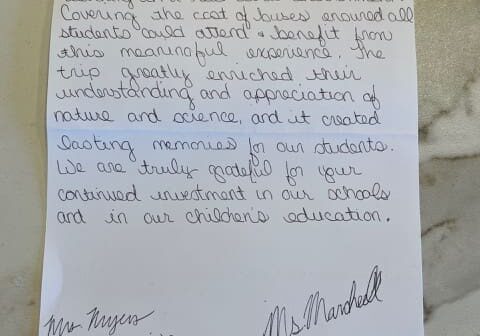 Covering the cost of buses ensured all
students could attend & benefit from
this meaningful experience. The
trip greatly enriched their
understanding and appreciation of
nature and science, and it created
lasting memories for our students.
We are truly grateful for your
continued investment in our schools
and in our children's education.
Mrs. Myers
Ms. Marshall